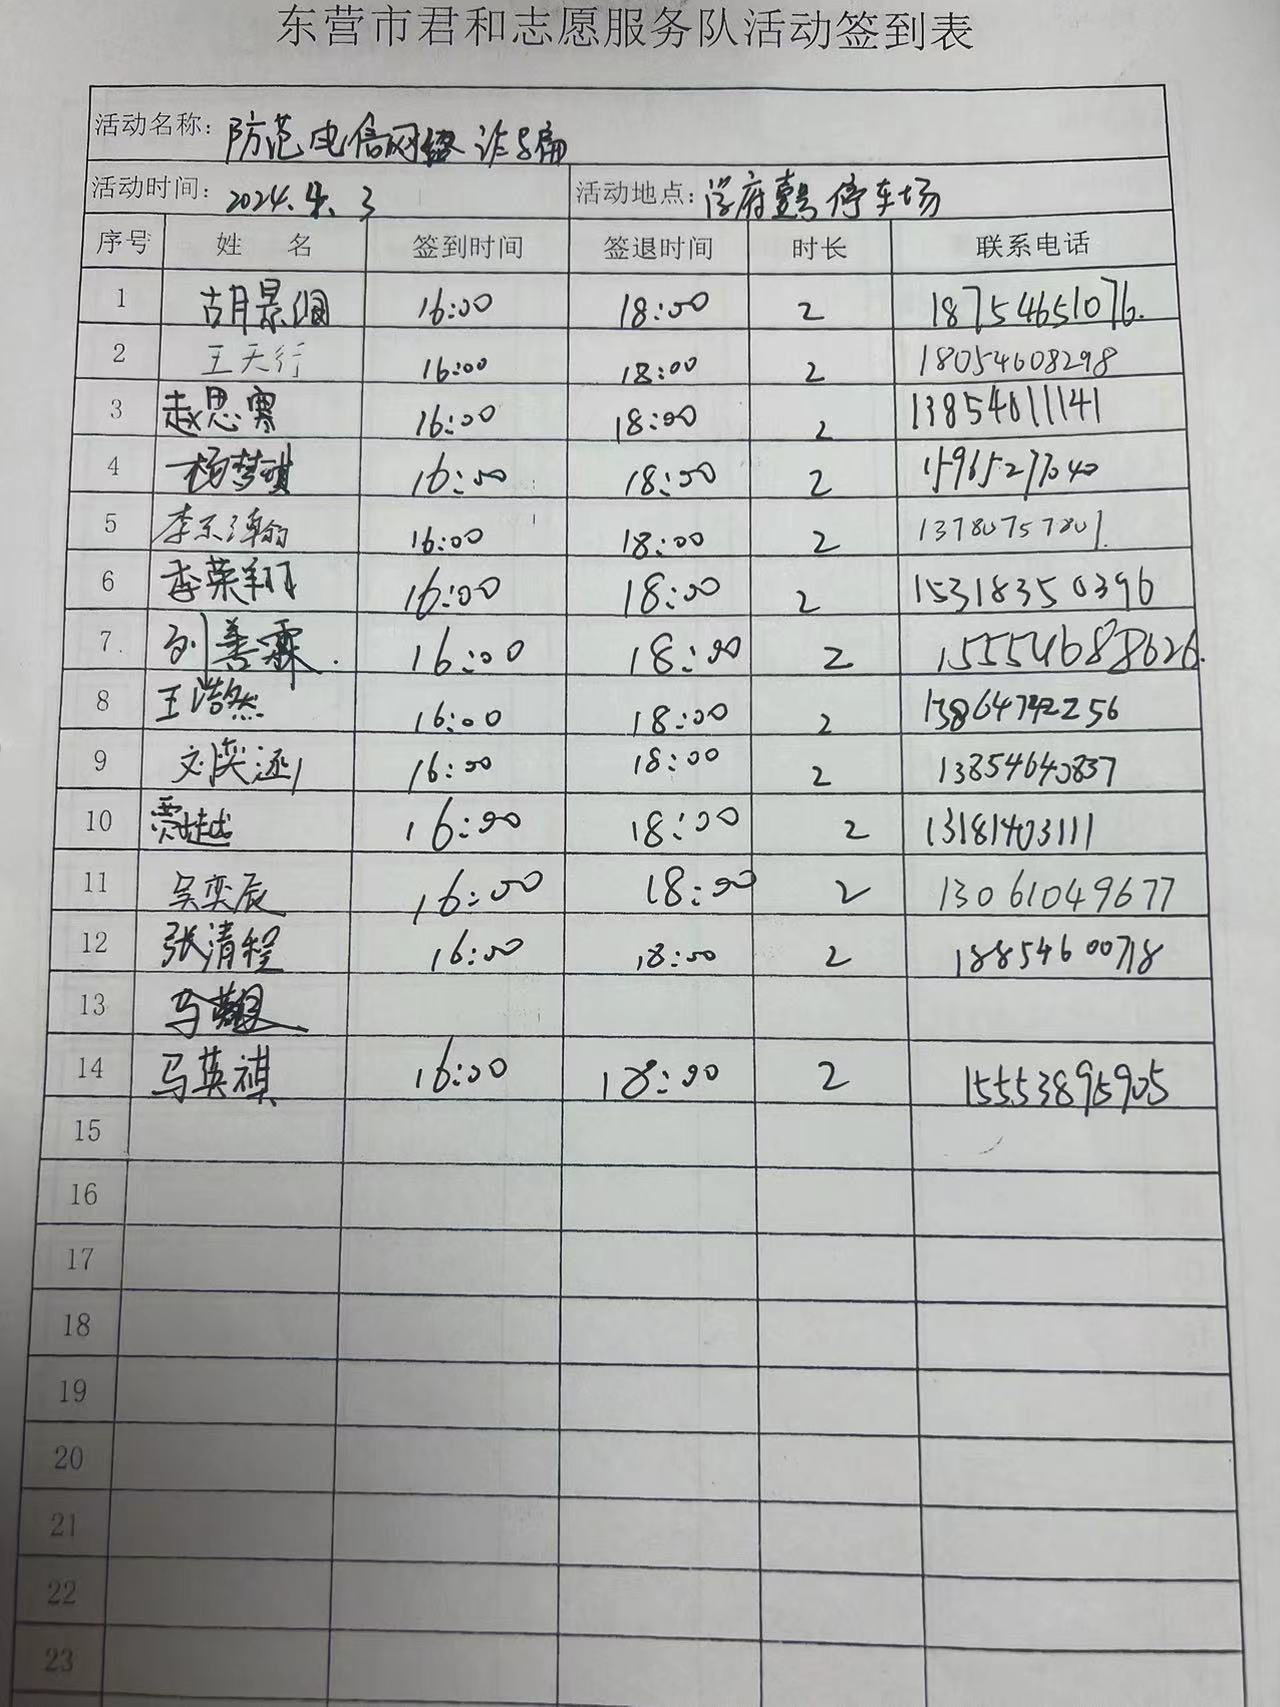 东营市君和志愿服务队活动签到表
活动名称: 防范电信网络诈骗
活动时间: 2024.4.3 活动地点: 学府壹号停车场
序号 姓 名 签到时间 签退时间 时长 联系电话
1 胡景涵 16:00 18:00 2 18754651076.
2 王天行 16:00 18:00 2 18054608298
3 赵思寒 16:00 18:00 2 13854611141
4 杨梦琪 16:00 18:00 2 15965277040
5 李东泽韵 16:00 18:00 2 13780757801.
6 李荣翔 16:00 18:00 2 15318350396
7. 刘善霖. 16:00 18:00 2 15554688626.
8 王浩然 16:00 18:00 2 13864742256
9 刘奕涵 16:00 18:00 2 13854640837
10 贾越 16:00 18:00 2 13181403111
11 吴奕辰 16:00 18:00 2 13061049677
12 张清程 16:00 18:00 2 18854600718
13
14 马英祺 16:00 18:00 2 15553895905
15
16
17
18
19
20
21
22
23